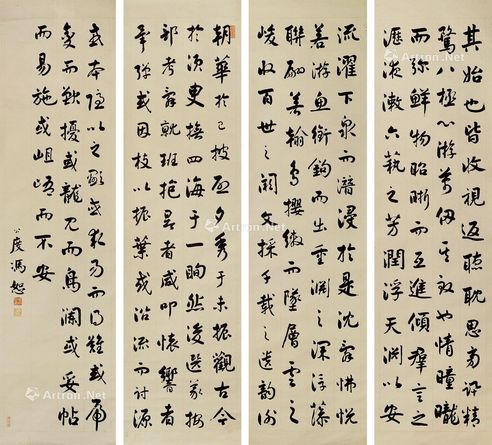 其始也皆收視返聽耽思旁訊精
騖八極心游萬仞其致也情曈曨
而彌鮮物昭晰而互進傾羣言之
瀝液漱六藝之芳潤浮天淵以安
流濯下泉而潛浸於是沈辭怫悅
若游魚銜鉤而出重淵之深浮藻
聯翩若翰鳥纓繳而墜層雲之
峻收百世之闕文採千載之遺韻謝
朝華於已披啟夕秀于未振觀古今
於須臾撫四海于一瞬然後選義按
部考辭就班抱景者咸叩懷響者
畢彈或因枝以振葉或沿流而討源
或本隱以之顯或求易而得難或虎
變而獸擾或龍見而鳥瀾或妥帖
而易施或岨峿而不安
公度馮恕